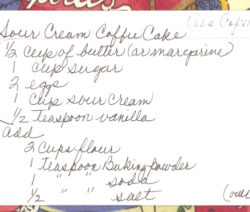 Sour Cream Coffee Cake
1/2 cup of butter (or margerine)
1 cup sugar
2 eggs
1 cup sour cream
1/2 teaspoon vanilla
Add
2 cups flour
1 teaspoon Baking powder
1 " " soda
1/2 " " salt